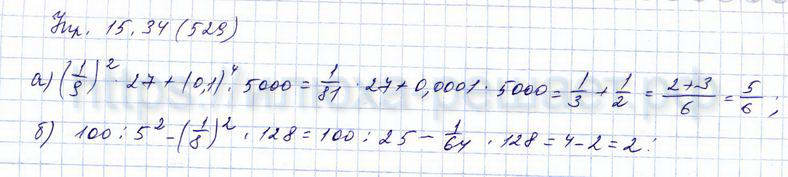 Упр. 15.34 (529)
а) (1/9)² · 27 + (0,1)⁴ · 5000 = 1/81 · 27 + 0,0001 · 5000 = 1/3 + 1/2 = (2+3)/6 = 5/6;
б) 100 : 5² - (1/8)² · 128 = 100 : 25 - 1/64 · 128 = 4 - 2 = 2.